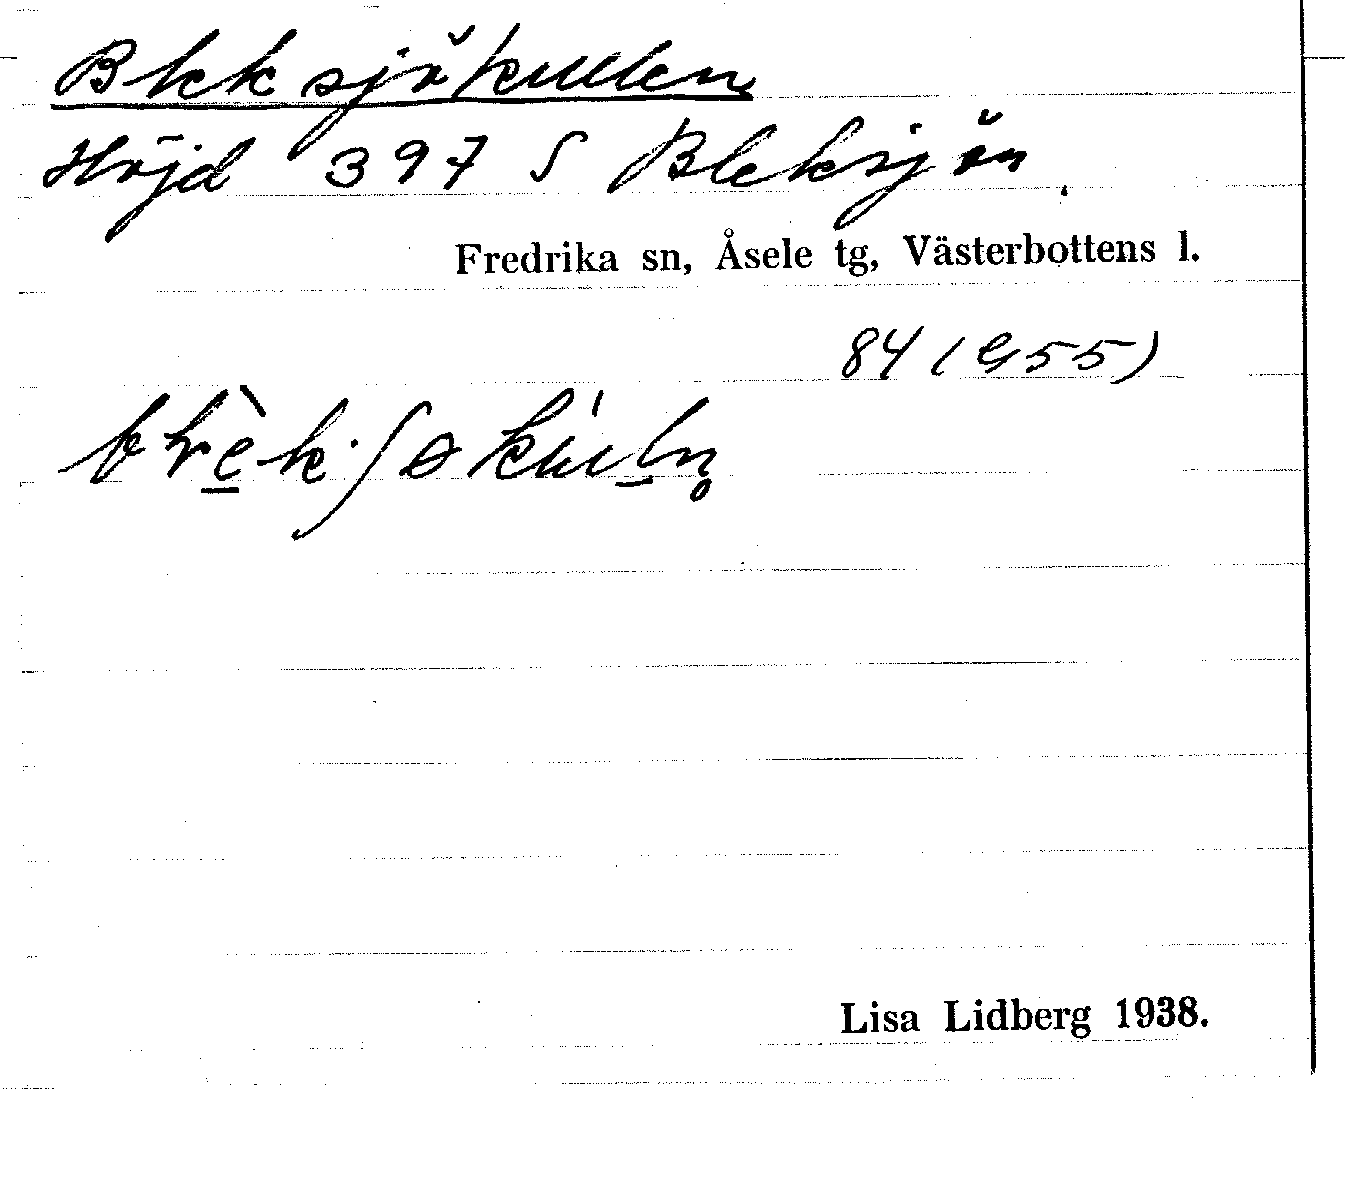 Bleksjökullen
Höjd 397 S Bleksjön.
Fredrika sn, Åsele tg, Västerbottens l.
84 (G55)
Lisa Lidberg 1938.